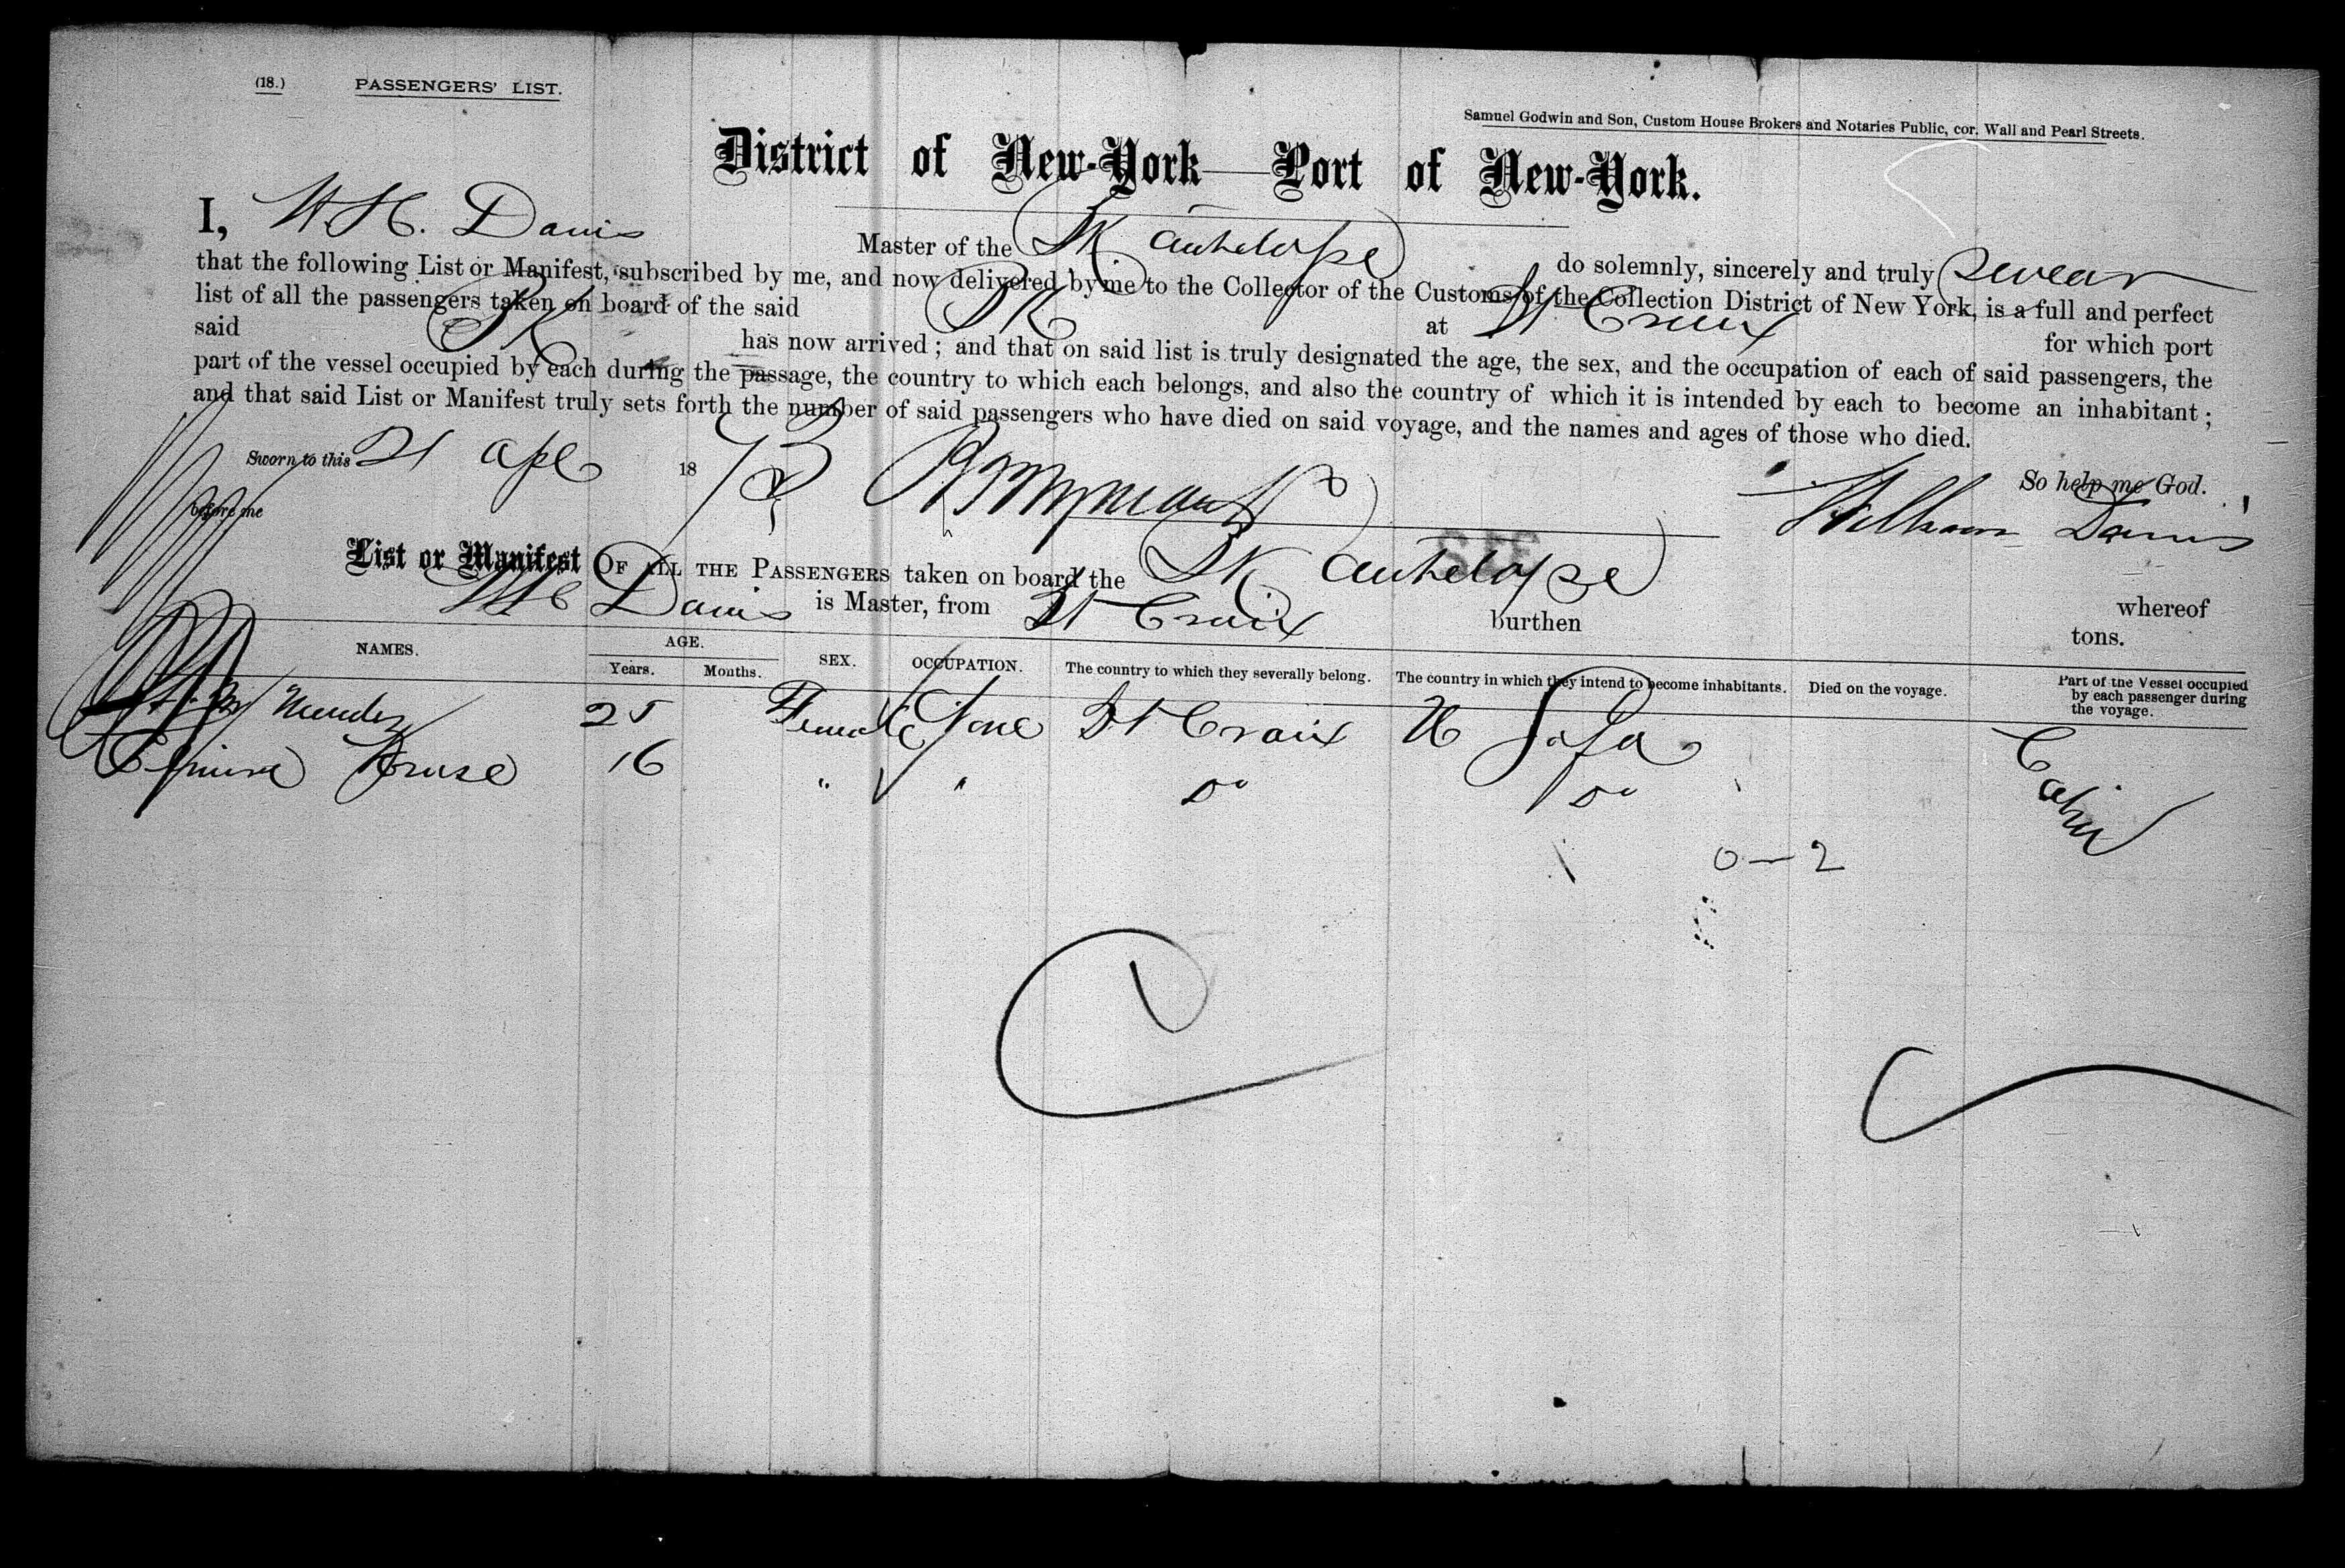 (18.) PASSENGERS' LIST.
Samuel Godwin and Son, Custom House Brokers and Notaries Public, cor. Wall and Pearl Streets.
District of New-York—Port of New-York.
I, W. H. Davis Master of the Bk Antelope do solemnly, sincerely and truly swear
that the following List or Manifest, subscribed by me, and now delivered by me to the Collector of the Customs of the Collection District of New York, is a full and perfect
list of all the passengers taken on board of the said Bk at St Croix for which port
said Bk has now arrived; and that on said list is truly designated the age, the sex, and the occupation of each of said passengers, the
part of the vessel occupied by each during the passage, the country to which each belongs, and also the country of which it is intended by each to become an inhabitant;
and that said List or Manifest truly sets forth the number of said passengers who have died on said voyage, and the names and ages of those who died.
Sworn to this 21 Apl 1873 So help me God.
before me William Davis
List or Manifest OF ALL THE PASSENGERS taken on board the Bk Antelope whereof
W H Davis is Master, from St Croix burthen tons.
NAMES. AGE. Years. Months. SEX. OCCUPATION. The country to which they severally belong. The country in which they intend to become inhabitants. Died on the voyage. Part of the Vessel occupied by each passenger during the voyage.
25 Female None St Croix U S of a Cabin
16 " " Do Do
0—2